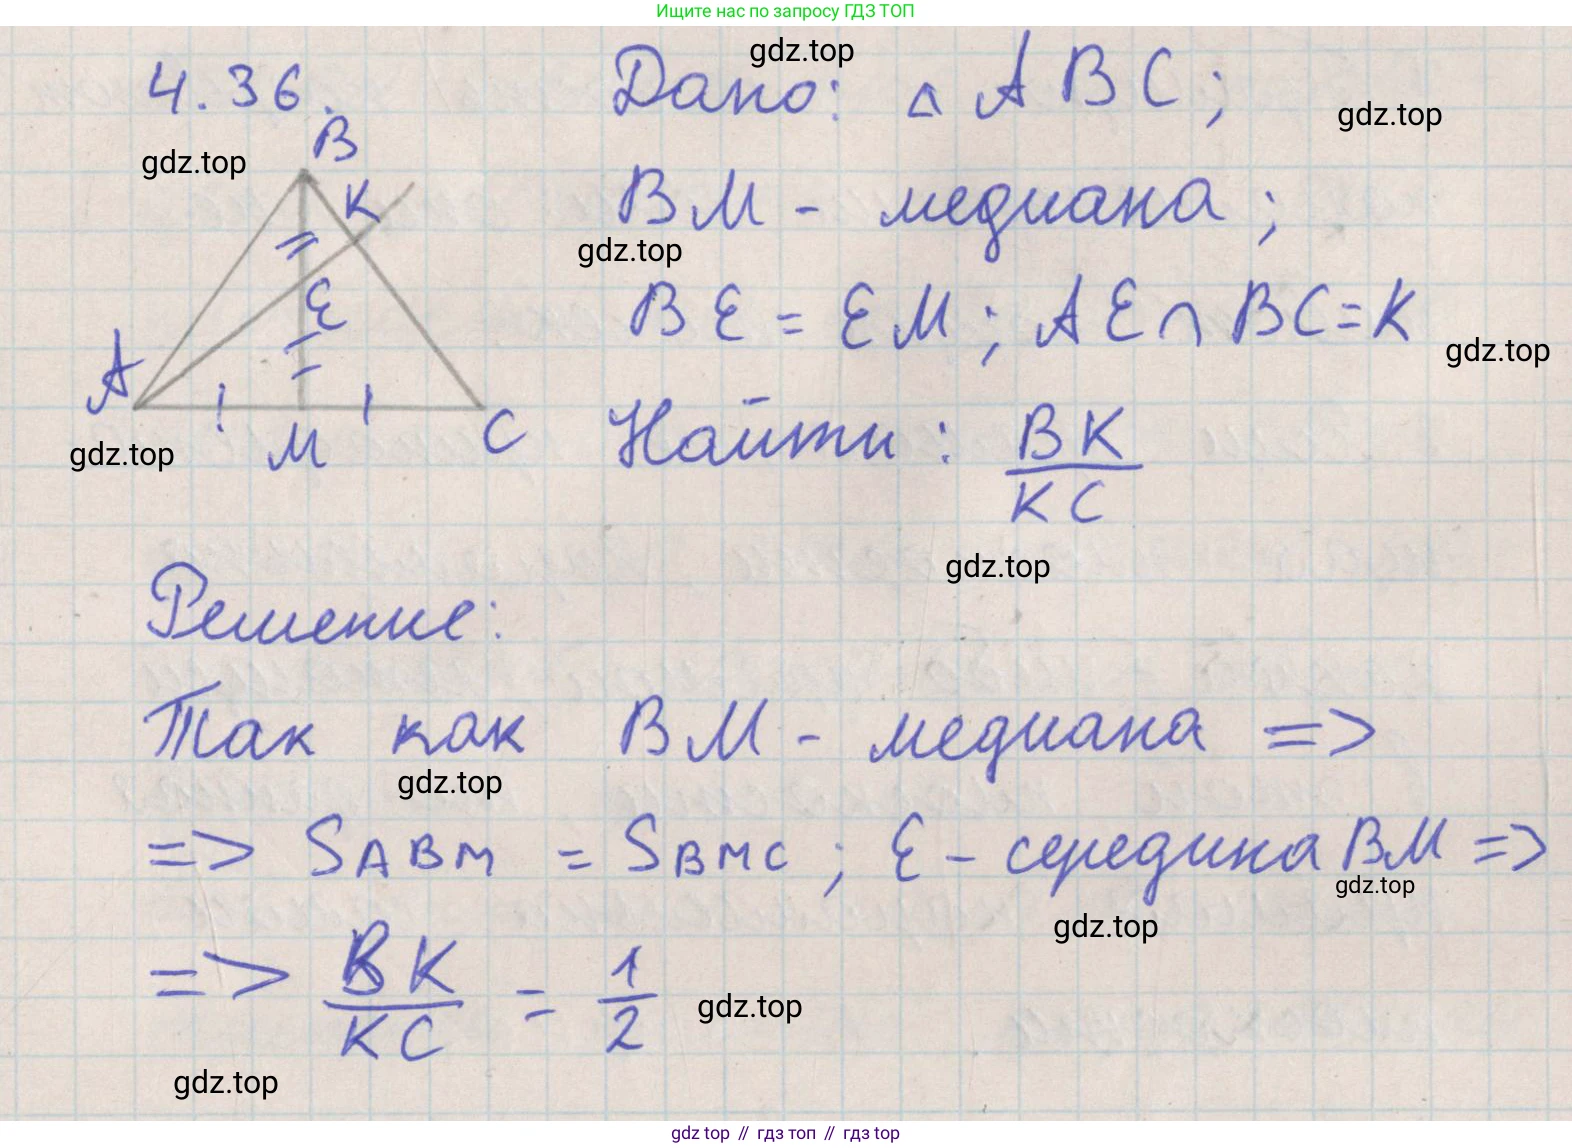 Ищите нас по запросу ГДЗ ТОП
gdz.top
4.36.
Дано: △ABC;
gdz.top
B
gdz.top
K
BM - медиана;
gdz.top
E
BE = EM; AE∩BC=K
gdz.top
A
M
C
gdz.top
Найти: BK/KC
gdz.top
Решение:
Так как BM - медиана =>
gdz.top
=> SABM = SBMC; E - середина BM =>
gdz.top
gdz.top
=> BK/KC = 1/2
gdz.top
gdz.top
gdz top // гдз топ // гдз top